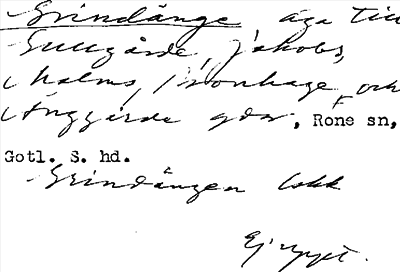 Grindänge äga till
Sutgårde, Jakobs,
Malms, Kronhage och
Änggårde gdar, Rone sn,
Gotl. S. hd.
Grindängen lokk
Ej uppt.